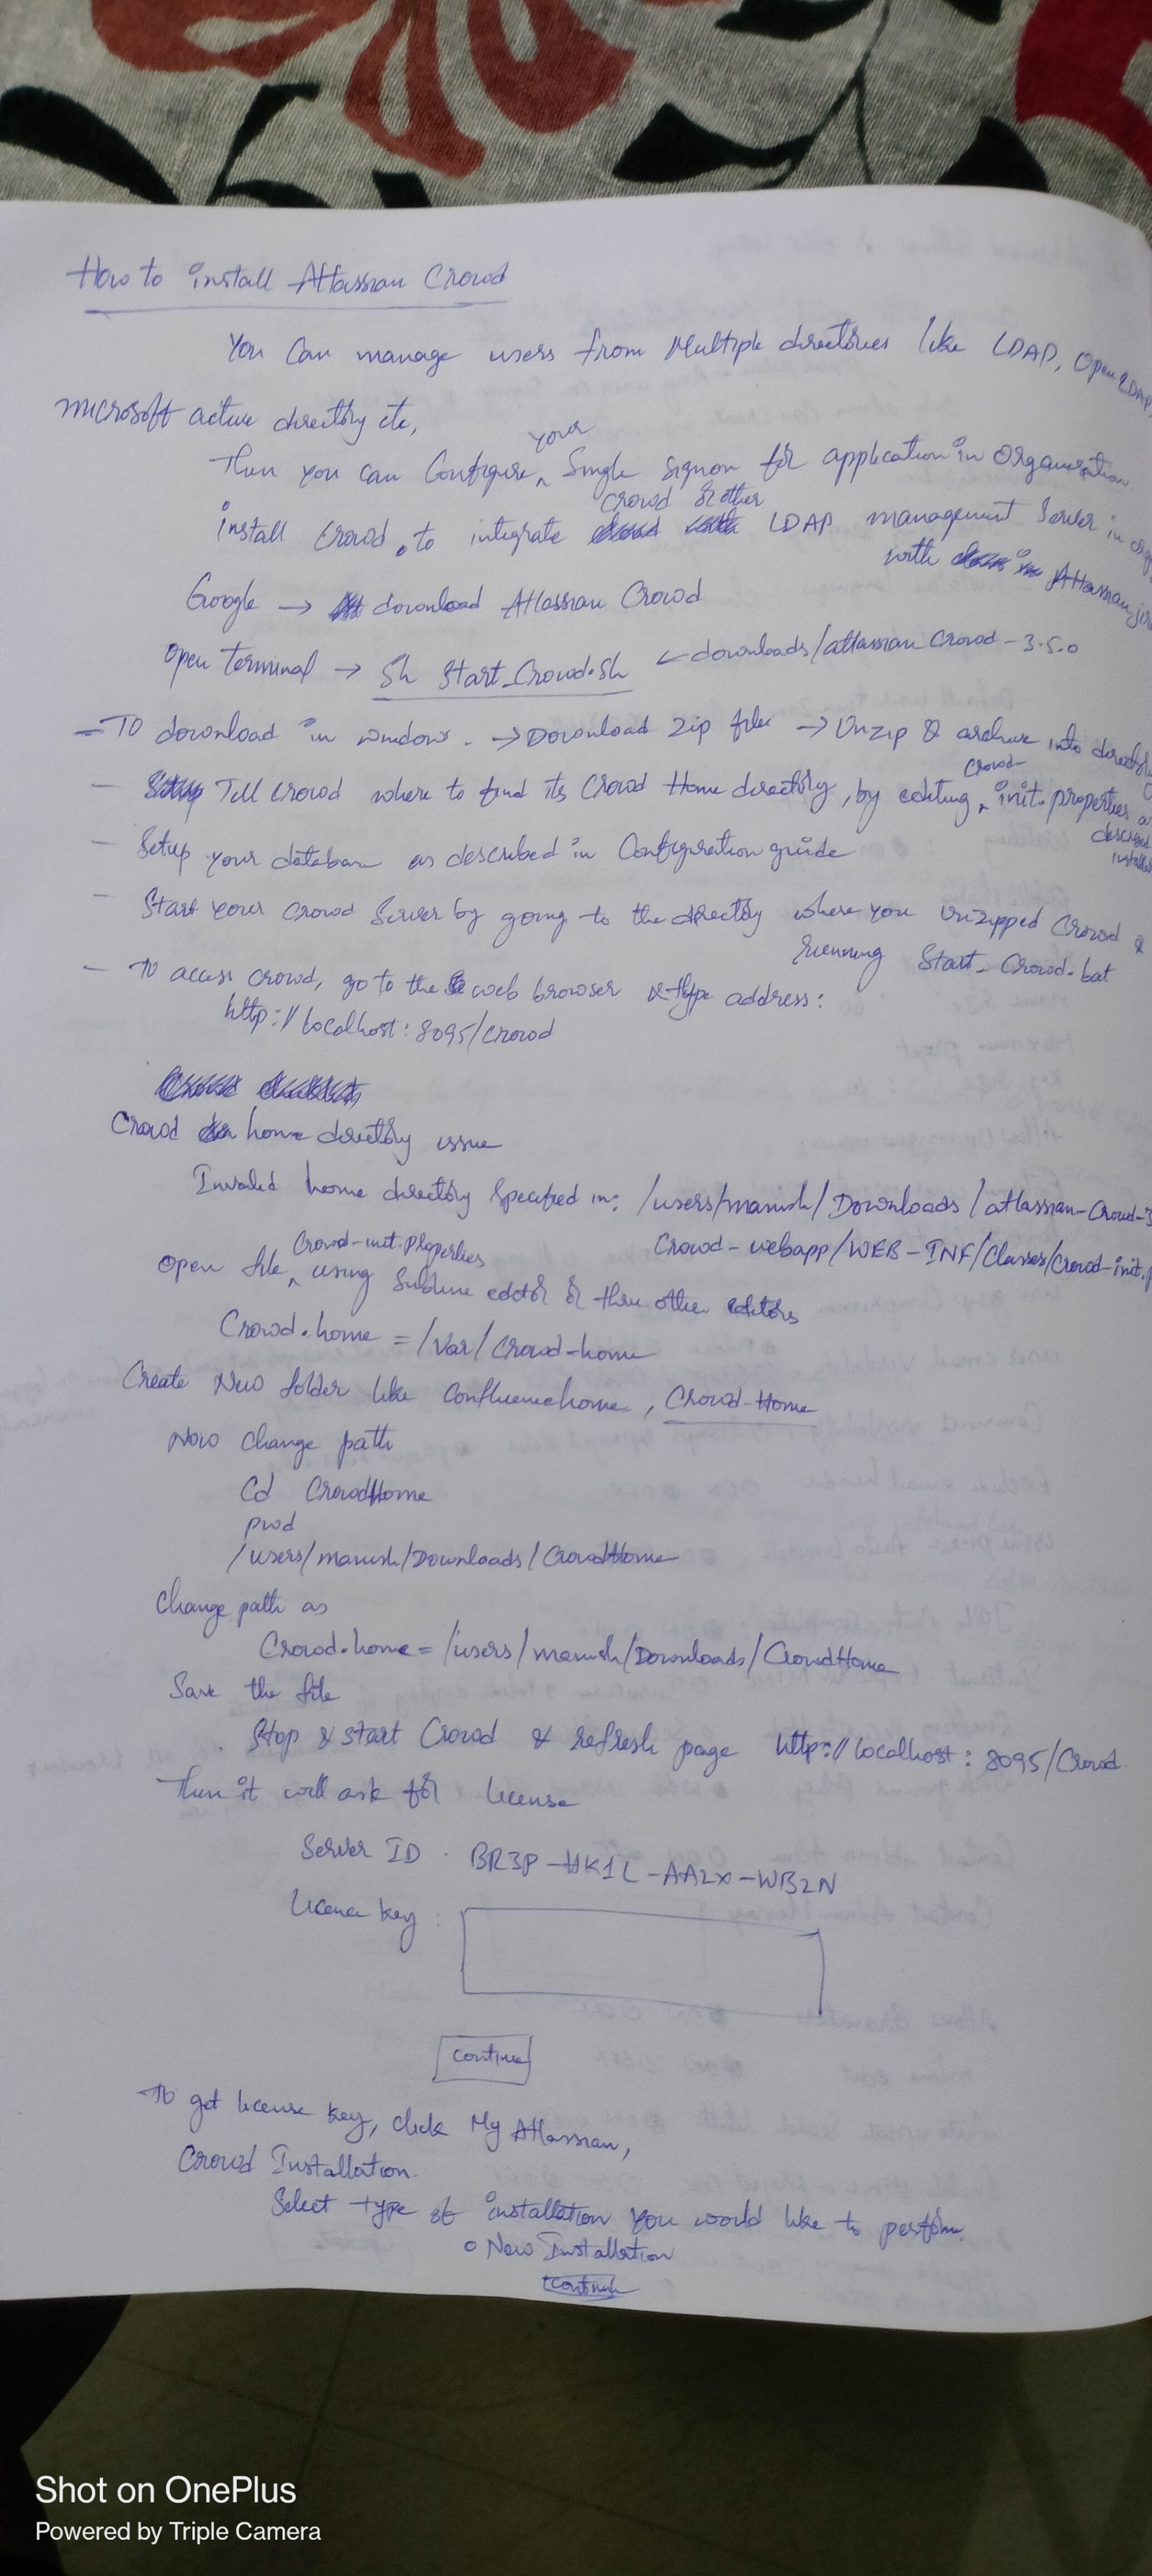 How to install Atlassian Crowd
You Can manage users from Multiple directories like LDAP, OpenLDAP,
microsoft active directory etc,
Then you can Configure your Single signon for application in Organisation
install Crowd to integrate crowd & other LDAP management Server in
with Atlassian
Google → download Atlassian Crowd
Open terminal → Sh Start_Crowd.Sh ← downloads/atlassian Crowd - 3.5.0
- To download in windows. → Download Zip file → Unzip & archive into
- Tell crowd where to find its Crowd Home directory, by editing crowd-init.properties
- Setup your database as described in Configuration guide
- Start your crowd Server by going to the directory where you Unzipped Crowd &
running Start_Crowd.bat
- To access crowd, go to the web browser & type address:
http://localhost:8095/crowd
Crowd home directory issue
Invalid home directory Specified in: /users/manish/Downloads/atlassian-Crowd-3
Crowd-webapp/WEB-INF/Classes/Crowd-init.p
Open file Crowd-init.properties using Sublime editor or other editors
Crowd.home = /var/crowd-home
Create New folder like Confluencehome, Crowd-Home
Now change path
Cd CrowdHome
pwd
/users/manish/Downloads/CrowdHome
Change path as
Crowd.home = /users/manish/Downloads/CrowdHome
Save the file
Stop & start Crowd & refresh page http://localhost:8095/Crowd
Then it will ask for license
Server ID BR3P-HK1L-AA2X-WB2N
License key:
Continue
To get license key, click My Atlassian,
Crowd Installation.
Select type of installation you would like to perform.
o New Installation
Continue
Shot on OnePlus
Powered by Triple Camera